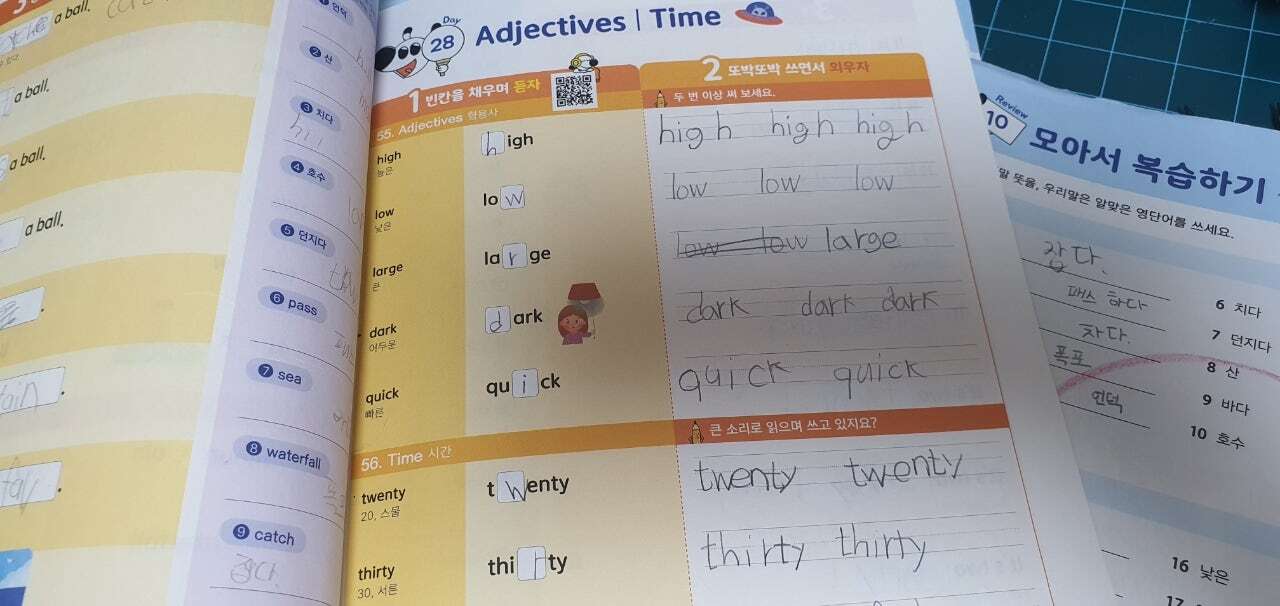 a ball.
a ball.
a ball.
a ball.
언덕
2 산
3 치다
4 호수
5 던지다
6 pass
7 sea
8 waterfall
9 catch
잡다.
Day
28
Adjectives | Time
1 빈칸을 채우며 듣자
55. Adjectives 형용사
high
높은
high
low
낮은
low
large
큰
large
dark
어두운
dark
quick
빠른
quick
56. Time 시간
twenty
20, 스물
twenty
thirty
30, 서른
thirty
2 또박또박 쓰면서 외우자
두 번 이상 써 보세요.
high high high
low low low
low low large
dark dark dark
quick quick
큰 소리로 읽으며 쓰고 있지요?
twenty twenty
thirty thirty
Review
10
모아서 복습하기
말 뜻을, 우리말은 알맞은 영단어를 쓰세요.
잡다.
패스 하다
차다.
폭포
언덕
6 치다
7 던지다
8 산
9 바다
10 호수
16 낮은
17